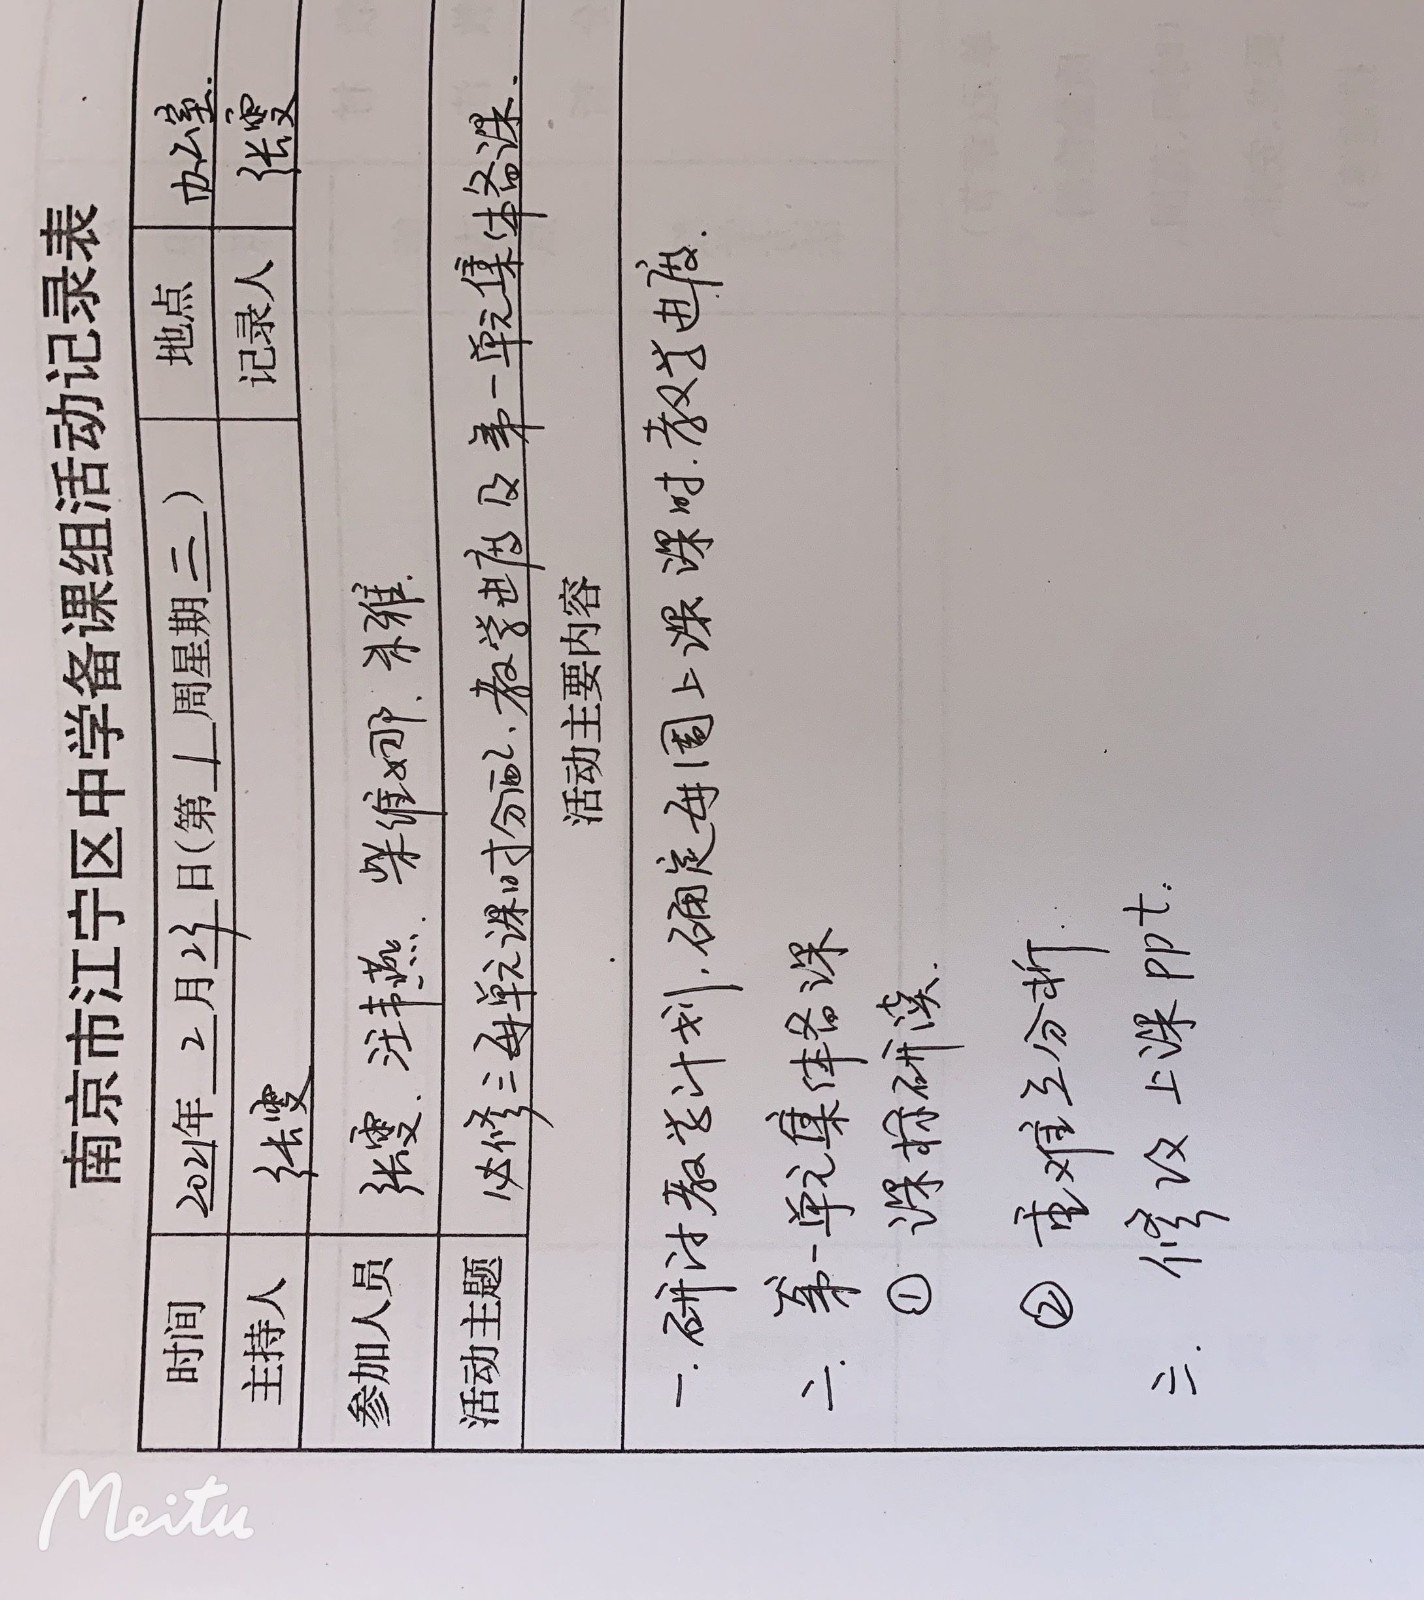 Meitu
南京市江宁区中学备课组活动记录表
时间 2021年 2 月 23 日(第 1 周星期 二 ) 地点 办公室.
主持人 张雯 记录人 张雯
参加人员 张雯. 汪韦燕. 柴维娜. 朱雅.
活动主题 必修三每单元课时分配、教学进度及第一单元集体备课.
活动主要内容
一. 研讨教学计划, 确定每周上课课时. 教学进度.
二. 第一单元集体备课
① 课标研读.
② 重难点分析.
三. 修改上课ppt.